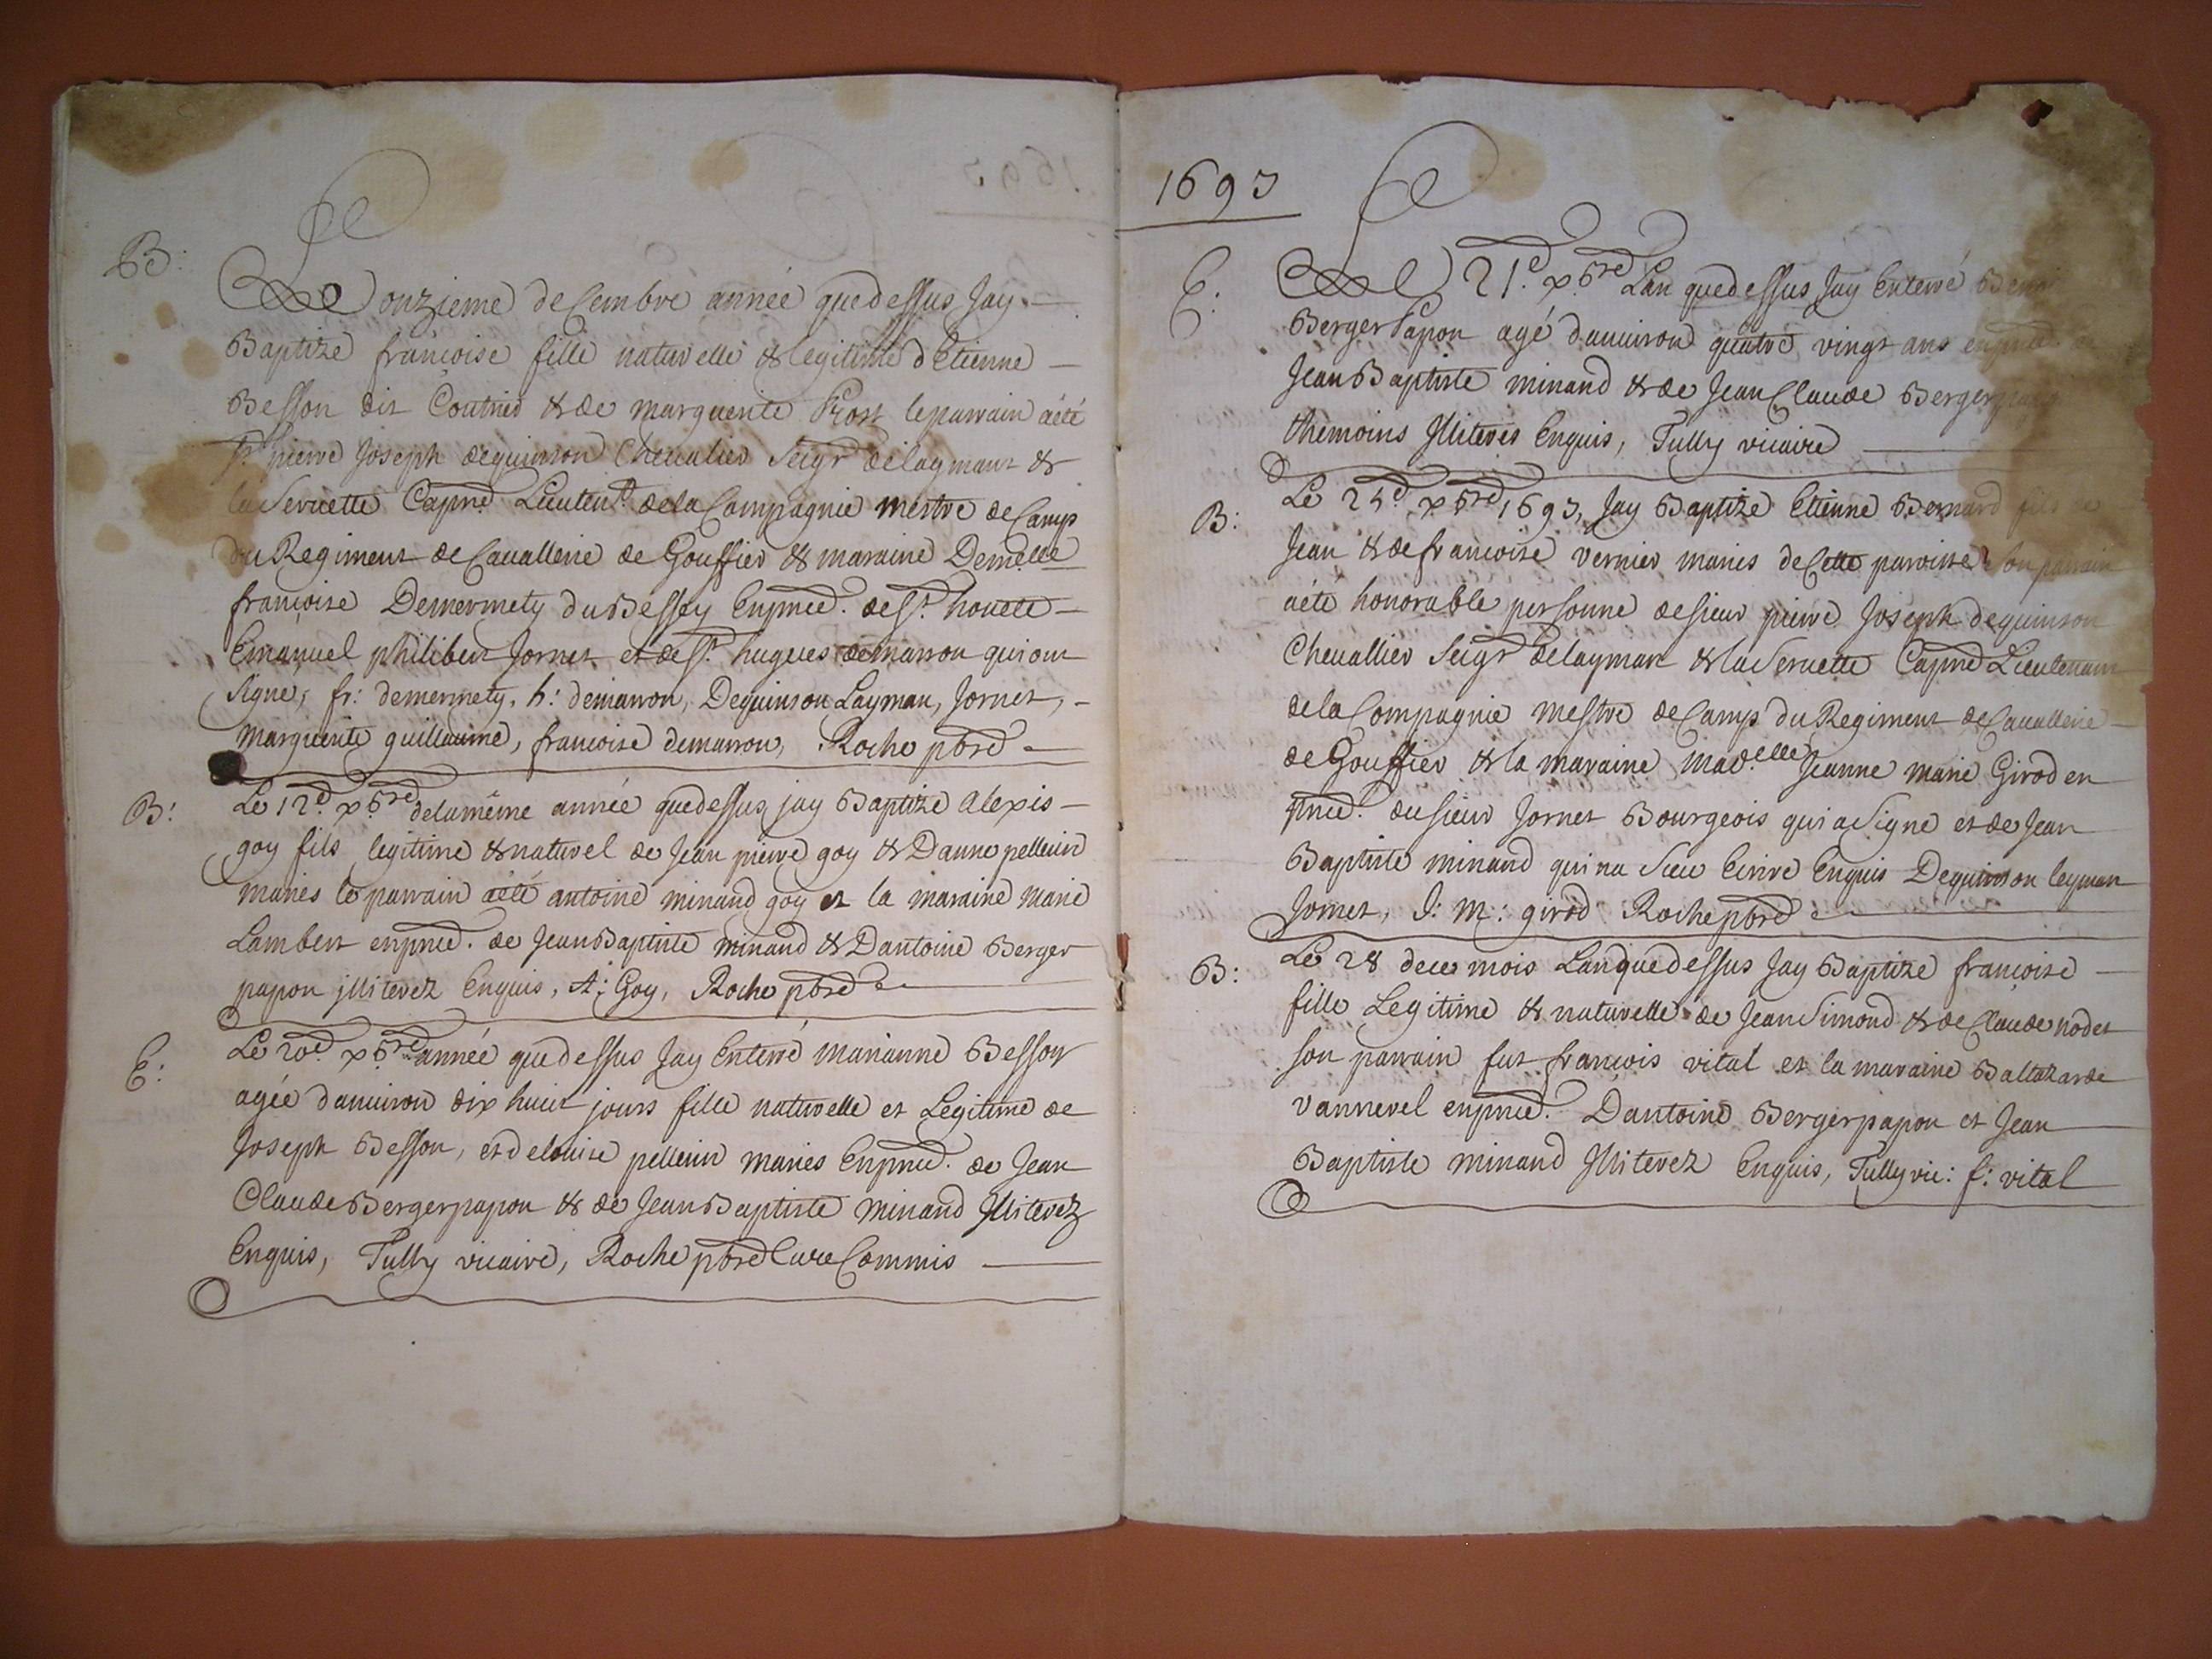 B:
Le onzieme decembre année quedessus Jay
Baptize francoise fille naturelle & legitime d'Etienne
Besson dit Coutrier & de marguerite Prost leparrain aété
Sr pierre Joseph dequinson Chevalier Seigr delaymant &
la Servette Capne Lieutent. dela Compagnie mestre de Camp
du Regiment de Cavallerie de Gouffier & maraine Demelle
francoise Demermety du Bessey enpnce. de Sr. honete
Emanuel philibert Jornet et de Sr. hugues demarron qui ont
signé, fr: demermety, h: demarron, Dequinson Layman, Jornet,
marguerite guillaume, francoise demarron, Roche pbre
B:
Le 12e xbre delamême année quedessus jay Baptize Alexis
goy fils legitime & naturel de Jean pierre goy & Danne pellerin
mariés le parrain aété antoine minand goy et la maraine marie
Lambert enpnce. de Jean Baptiste minand & Dantoine Berger
papon jllitevez Enquis, A: Goy, Roche pbre
E:
Le 20e xbre année quedessus Jay Enterré marianne Besson
agée danuiron dix huict jours fille naturelle et Legitime de
Joseph Besson, et delouise pellerin mariés Enpnce. de Jean
Claude Bergerpapon & de Jean Baptiste minand Jllitevez
Enquis, Tully vicaire, Roche pbre Cure Commis
1693
E.
Le 21e xbre Lan quedessus Jay Enterré
Berger Papon agé danuiron quatre vingt ans enpnce
Jean Baptiste minand & de Jean Claude Berger
themoins Jlliteres Enquis, Tully vicaire
B:
Le 25e xbre 1693, Jay Baptize Etienne Bernard fils de
Jean & de francoise vernier mariés de Cette paroisse Son parrain
aété honorable personne desieur pierre Joseph dequinson
Chevallier Seigr delaymant & la Servette Capne Lieutenant
dela Compagnie mestre de Camp du Regiment de Cavallerie
de Gouffier & la maraine Mad.elle Jeanne marie Girod en
pnce. dusieur Jornet Bourgeois qui a Signe et de Jean
Baptiste minand qui na Sceu Ecrire Enquis Dequinson leyman
Jornet, J: M: girod Roche pbre
B:
Le 28 dece mois Lanquedessus Jay Baptize francoise
fille Legitime & naturelle de Jean Simond & de Claude nodet
son parrain fut francois vital et la maraine Baltazarde
vannevel enpnce. Dantoine Bergerpapon et Jean
Baptiste minand Jllitevez Enquis, Tully vic: f: vital